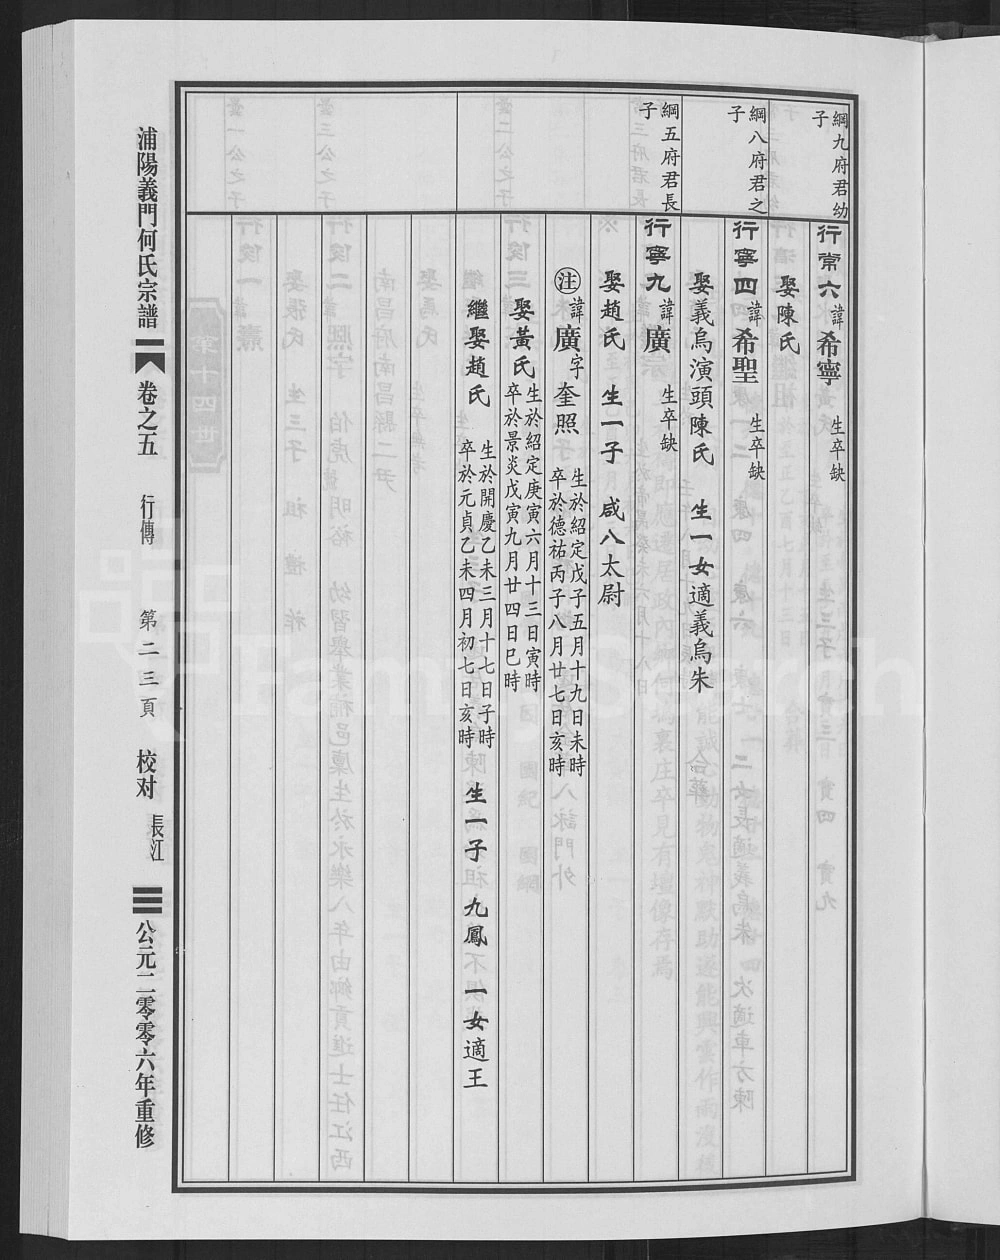 綱九府君幼
子
行常六 諱 希寧 生卒缺
娶陳氏
綱八府君之
子
行寧四 諱 希聖 生卒缺
娶義烏演頭陳氏 生一女適義烏朱
綱五府君長
子
行寧九 諱 廣 生卒缺
娶趙氏 生一子 咸八太尉
注 諱 廣 字 奎照 生於紹定戊子五月十九日未時
卒於德祐丙子八月廿七日亥時
娶黃氏 生於紹定庚寅六月十三日寅時
卒於景炎戊寅九月廿四日巳時
繼娶趙氏 生於開慶乙未三月十七日子時
卒於元貞乙未四月初七日亥時 生一子 九鳳 一女適王
浦陽義門何氏宗譜 卷之五 行傳 第二三頁 校对 張江 公元二零零六年重修